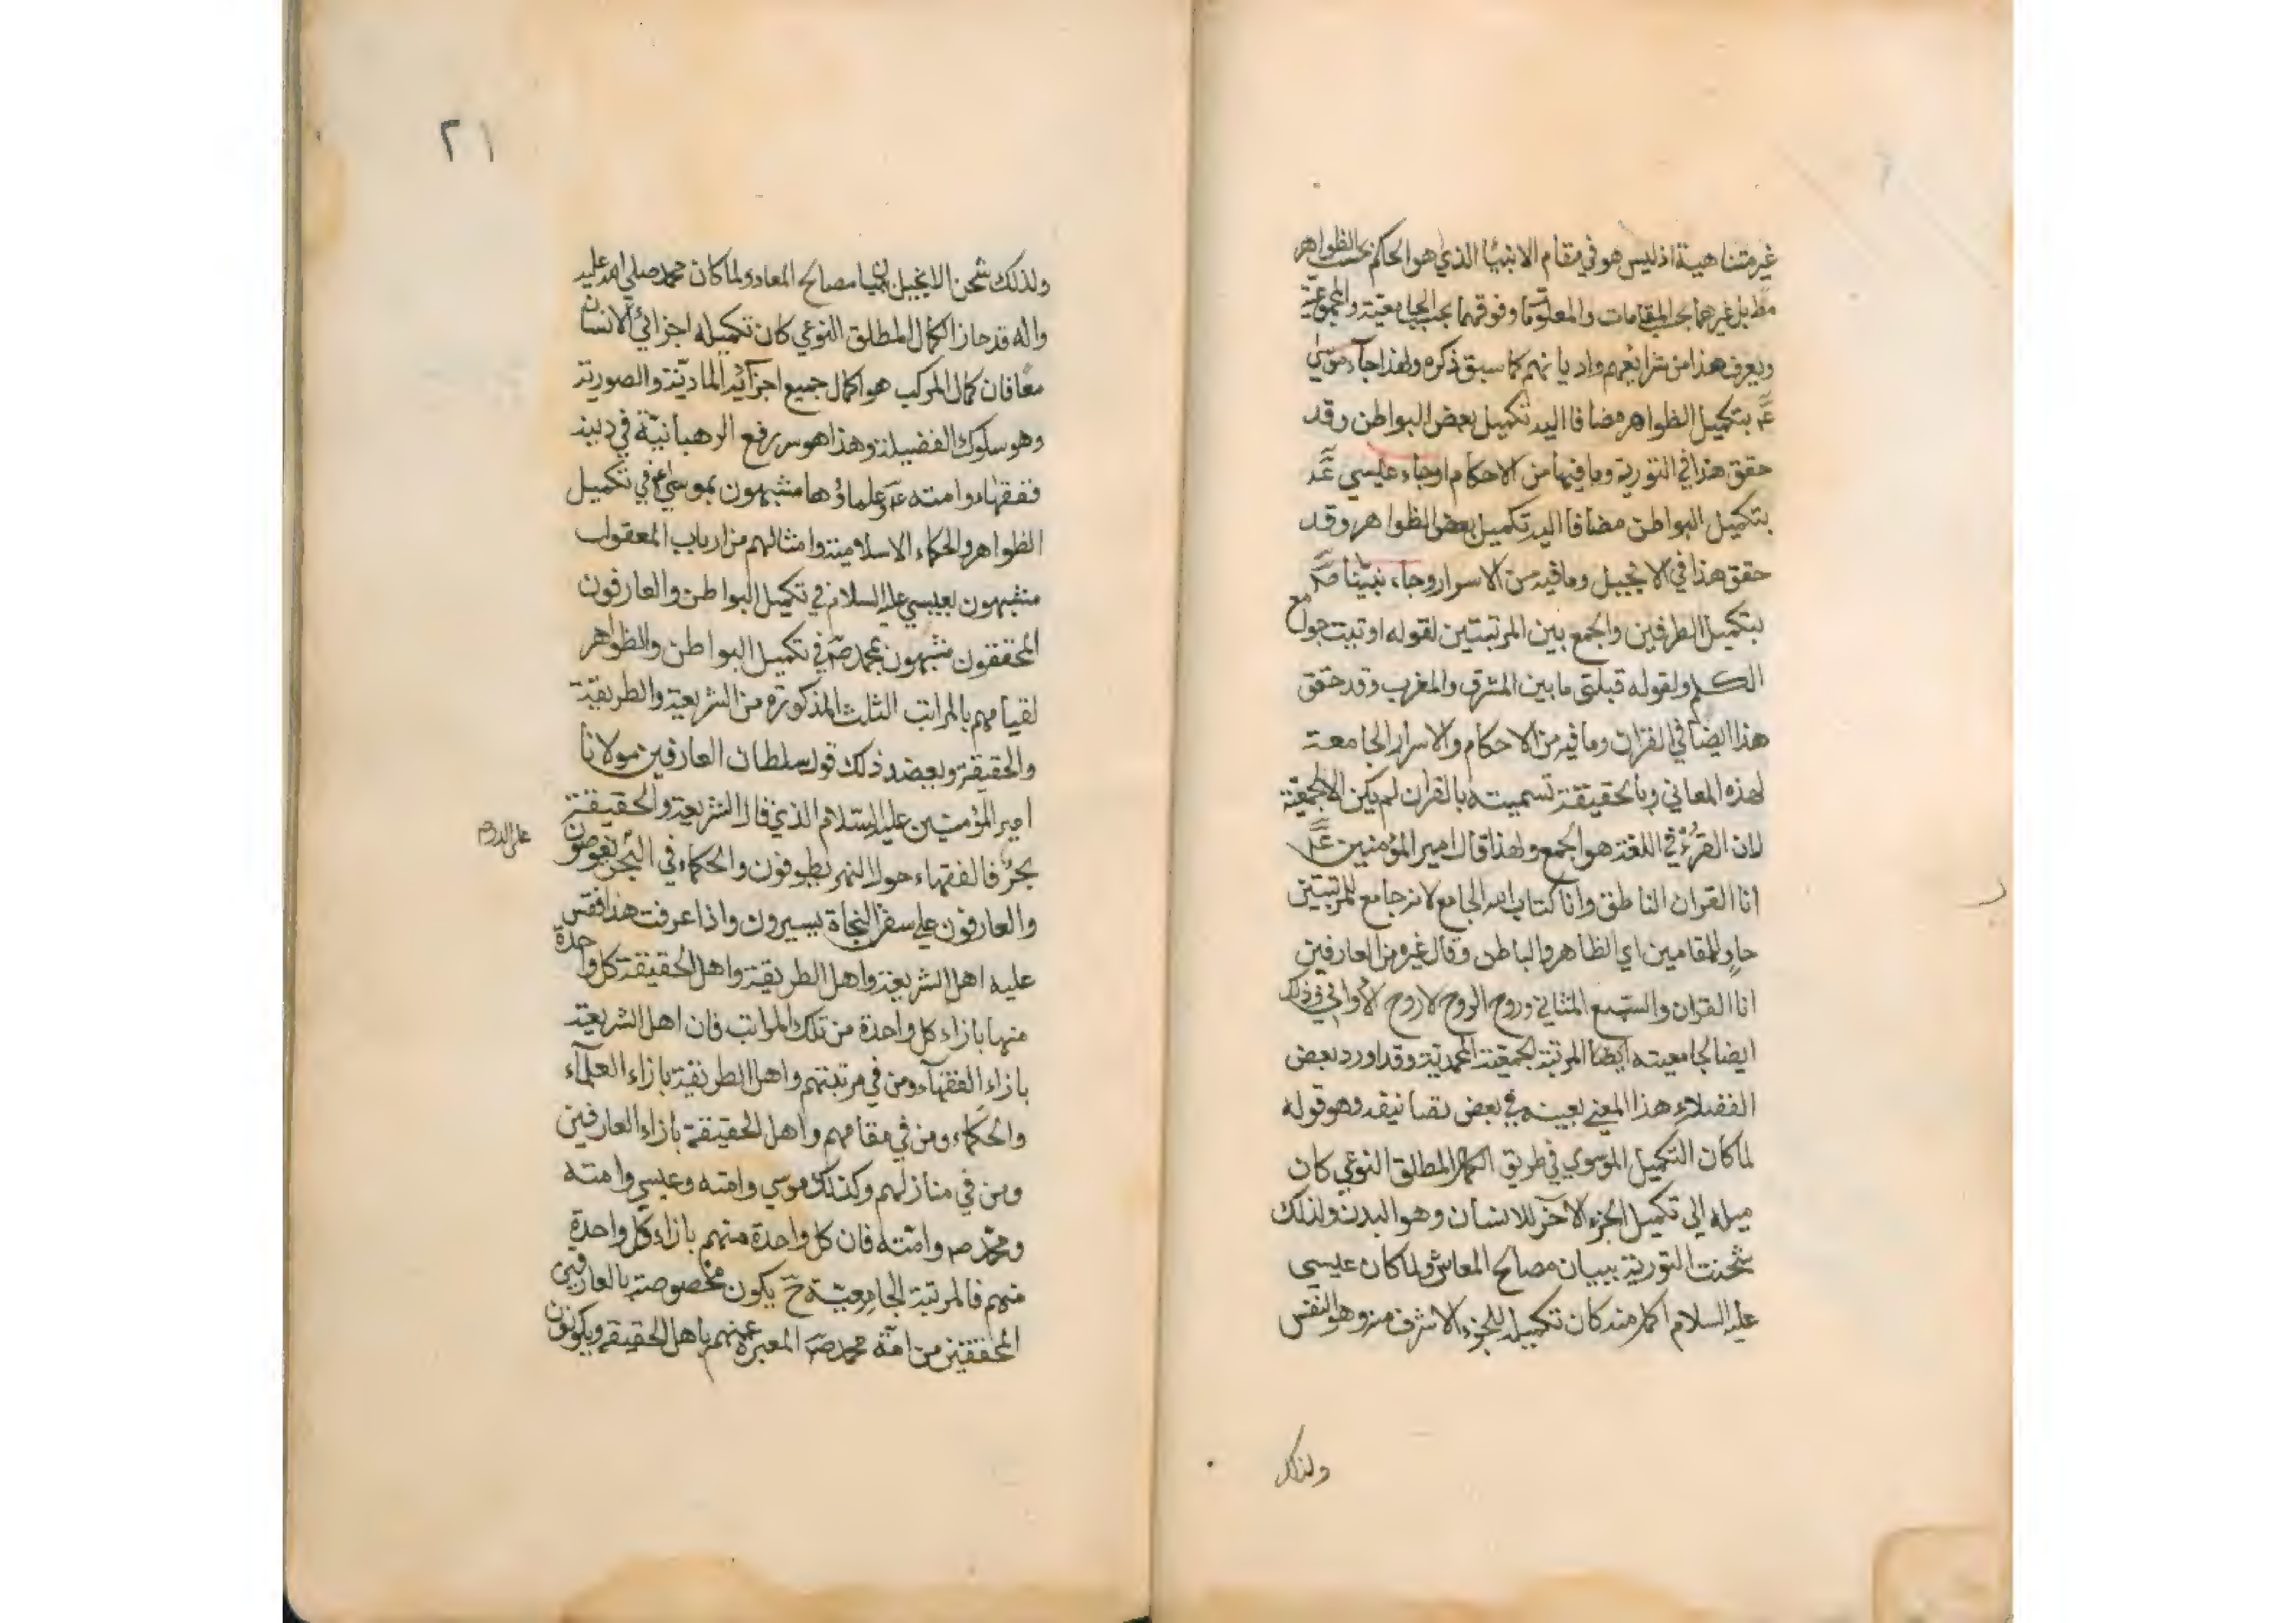 غير متناهية اذ ليس هو في مقام الانبيا الذي هو الحاكم بحسب الظواهر
بل غيرهما بحسب المقامات والمعلومات وفوقهما بحسب الجامعية والمجموعية
ويعرف هذا من شرايعهم واديانهم كما سبق ذكره ولهذا جآء موسى
عم بتكميل الظواهر مضافا اليه تكميل بعض البواطن وقد
حقق هذا في التورية وما فيها من الاحكام وجاء عيسي عم
بتكميل البواطن مضافا اليه تكميل بعض الظواهر وقد
حقق هذا في الانجيل وما فيه من الاسرار وجاء نبيّنا صم
بتكميل الطرفين والجمع بين المرتبتين لقوله اوتيت جوامع
الكلم ولقوله قبلتي ما بين المشرق والمغرب وقد حقق
هذا ايضا في القران وما فيه من الاحكام والاسرار الجامعة
لهذه المعاني وبالحقيقة تسميته بالقران لم يكن الا لجمعيته
لان القرء في اللغة هو الجمع ولهذا قال امير المؤمنين عم
انا القران الناطق وانا كتاب الله الجامع لانه جامع للمرتبتين
حاو للمقامين اي الظاهر والباطن وقال غيره من العارفين
انا القران والسبع المثاني وروح الروح لا روح الاواني وذلك
ايضا لجامعيته ايضا المرتبة الجمعية المحمدية وقد اورد بعض
الفضلاء هذا المعني بعينه في بعض تصانيفه وهو قوله
لما كان التكميل الموسوي في طريق الكمال المطلق النوعي كان
ميله الي تكميل الجزء الآخر للانسان وهو البدن ولذلك
شحنت التورية ببيان مصالح المعاش ولما كان عيسى
عليه السلام اكمل منه كان تكميله للجزء الاشرف منه وهو النفس
ولذلك
٢١
ولذلك شحن الانجيل ببيان مصالح المعاد ولما كان محمد صلي الله عليه
واله قد حاز الكمال المطلق النوعي كان تكميله اجزائي الانسان
معا فان كمال المركب هو اكمال جميع اجزائه المادية والصورية
وهو سلوك الفضيلة وهذا هو سر رفع الرهبانية في دينه
ففقهاء امته عم وعلماؤها مشبهون بموسي عم في تكميل
الظواهر والحكماء الاسلامية وامثالهم من ارباب المعقولات
مشبهون بعيسي عليه السلام في تكميل البواطن والعارفون
المحققون مشبهون بمحمد صم في تكميل البواطن والظواهر
لقيامهم بالمراتب الثلث المذكورة من الشريعة والطريقة
والحقيقة ويعضد ذلك قول سلطان العارفين مولانا
امير المؤمنين عليه السلام الذي قال الشريعة نهر والحقيقة
بحر فالفقهاء حول النهر يطوفون والحكماء في البحر يغوصون
والعارفون علي سفن النجاة يسيرون واذا عرفت هذا فقس
عليه اهل الشريعة واهل الطريقة واهل الحقيقة كل واحدة
منها بازاء كل واحدة من تلك المراتب فان اهل الشريعة
بازاء الفقهآء ومن في مرتبتهم واهل الطريقة بازاء العلمآء
والحكماء ومن في مقامهم واهل الحقيقة بازاء العارفين
ومن في منازلهم وكذلك موسي وامته وعيسي وامته
ومحمد صم وامته فان كل واحدة منهم بازاء كل واحدة
منهم فالمرتبة الجامعية ح يكون مخصوصة بالعارفين
المحققين من امة محمد صم المعبر عنهم باهل الحقيقة ويكونون